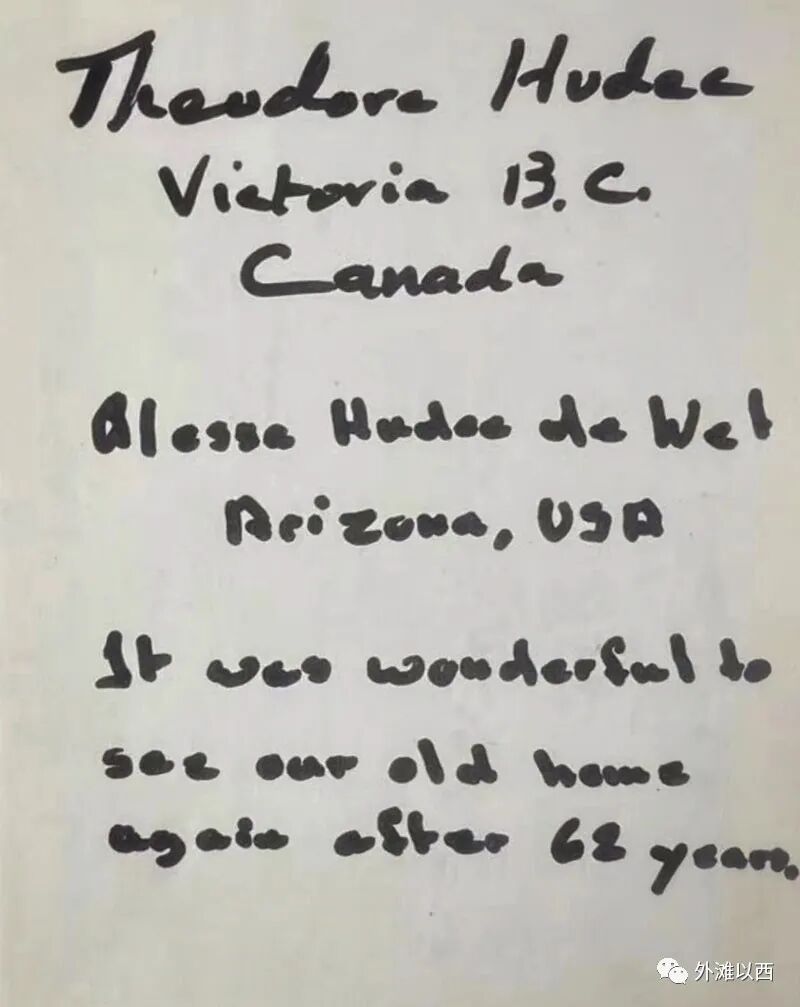 Theodore Hudec
Victoria B.C.
Canada
Alessa Hudec de Wet
Arizona, USA
It was wonderful to
see our old home
again after 62 years.
外滩以西